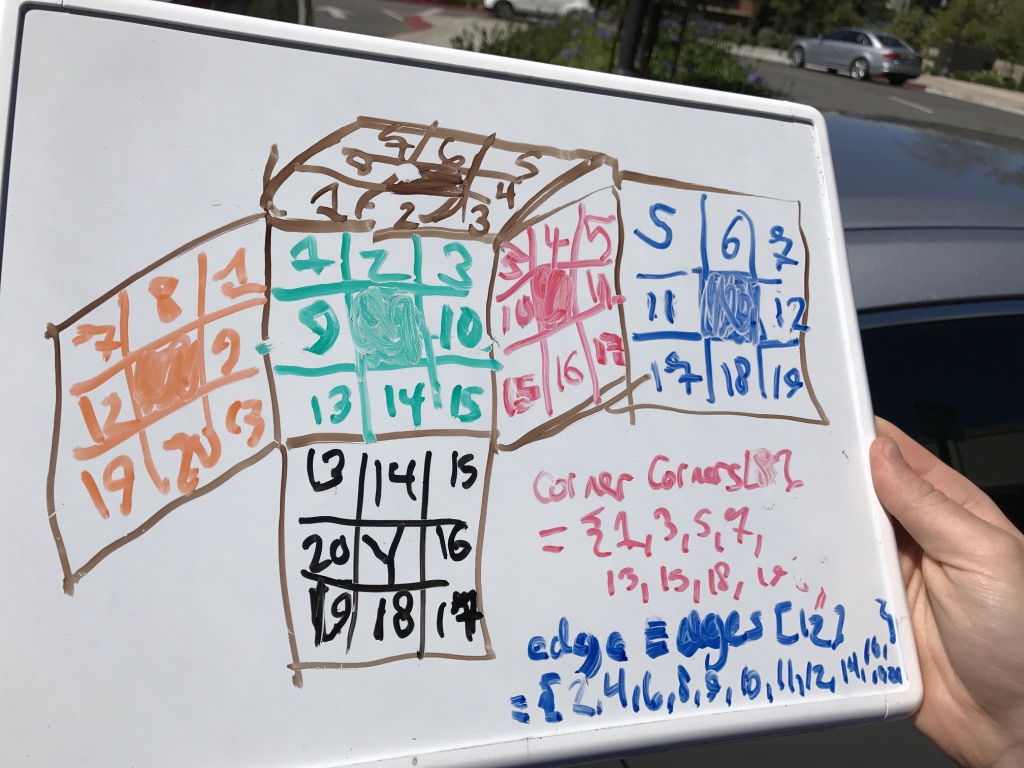 7 6 5
8 4
1 2 3
7 8 1
12 9
19 20 13
1 2 3
9 10
13 14 15
3 4 5
10 11
15 16 17
5 6 7
11 12
17 18 19
13 14 15
20 Y 16
19 18 17
Corner Corners[8]
= {1,3,5,7,
13, 15, 18, 19
edge edges [12]
= {2,4,6,8,9,10,11,12,14,16, }